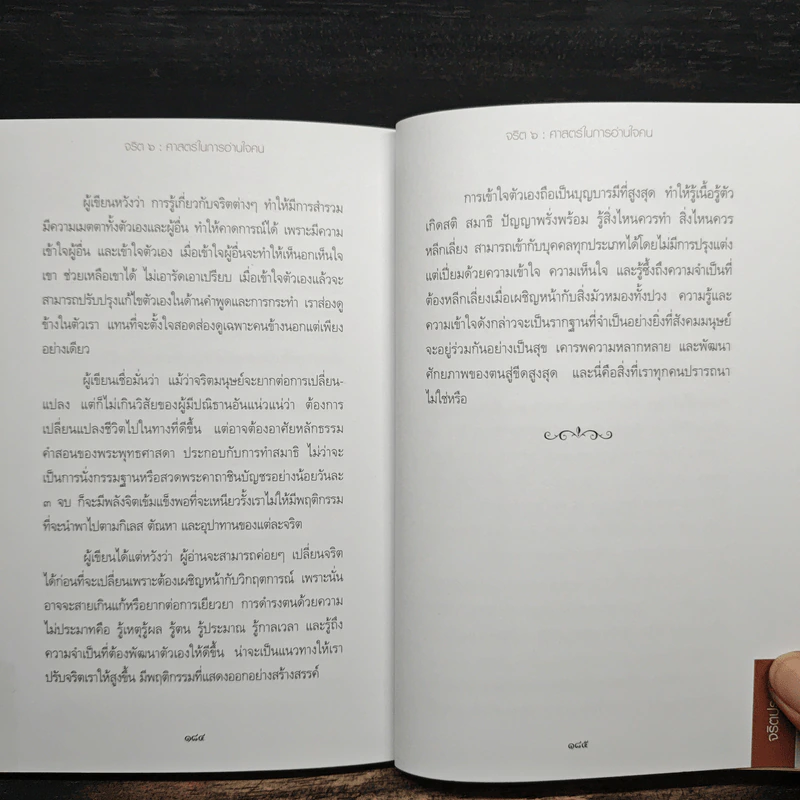 จริต ๖ : ศาสตร์ในการอ่านใจคน
ผู้เขียนหวังว่า การรู้เกี่ยวกับจริตต่างๆ ทำให้มีการสำรวม
มีความเมตตาทั้งตัวเองและผู้อื่น ทำให้คาดการณ์ได้ เพราะมีความ
เข้าใจผู้อื่น และเข้าใจตัวเอง เมื่อเข้าใจผู้อื่นจะทำให้เห็นอกเห็นใจ
เขา ช่วยเหลือเขาได้ ไม่เอารัดเอาเปรียบ เมื่อเข้าใจตัวเองแล้วจะ
สามารถปรับปรุงแก้ไขตัวเองในด้านคำพูดและการกระทำ เราส่องดู
ข้างในตัวเรา แทนที่จะตั้งใจสอดส่องดูเฉพาะคนข้างนอกแต่เพียง
อย่างเดียว
ผู้เขียนเชื่อมั่นว่า แม้ว่าจริตมนุษย์จะยากต่อการเปลี่ยน-
แปลง แต่ก็ไม่เกินวิสัยของผู้มีปณิธานอันแน่วแน่ว่า ต้องการ
เปลี่ยนแปลงชีวิตไปในทางที่ดีขึ้น แต่อาจต้องอาศัยหลักธรรม
คำสอนของพระพุทธศาสดา ประกอบกับการทำสมาธิ ไม่ว่าจะ
เป็นการนั่งกรรมฐานหรือสวดพระคาถาชินบัญชรอย่างน้อยวันละ
๓ จบ ก็จะมีพลังจิตเข้มแข็งพอที่จะเหนี่ยวรั้งเราไม่ให้มีพฤติกรรม
ที่จะนำพาไปตามกิเลส ตัณหา และอุปาทานของแต่ละจริต
ผู้เขียนได้แต่หวังว่า ผู้อ่านจะสามารถค่อยๆ เปลี่ยนจริต
ได้ก่อนที่จะเปลี่ยนเพราะต้องเผชิญหน้ากับวิกฤตการณ์ เพราะนั่น
อาจจะสายเกินแก้หรือยากต่อการเยียวยา การดำรงตนด้วยความ
ไม่ประมาทคือ รู้เหตุรู้ผล รู้ตน รู้ประมาณ รู้กาลเวลา และรู้ถึง
ความจำเป็นที่ต้องพัฒนาตัวเองให้ดีขึ้น น่าจะเป็นแนวทางให้เรา
ปรับจริตเราให้สูงขึ้น มีพฤติกรรมที่แสดงออกอย่างสร้างสรรค์
๑๘๔
จริต ๖ : ศาสตร์ในการอ่านใจคน
การเข้าใจตัวเองถือเป็นบุญบารมีที่สูงสุด ทำให้รู้เนื้อรู้ตัว
เกิดสติ สมาธิ ปัญญาพรั่งพร้อม รู้สิ่งไหนควรทำ สิ่งไหนควร
หลีกเลี่ยง สามารถเข้ากับบุคคลทุกประเภทได้โดยไม่มีการปรุงแต่ง
แต่เปี่ยมด้วยความเข้าใจ ความเห็นใจ และรู้ซึ้งถึงความจำเป็นที่
ต้องหลีกเลี่ยงเมื่อเผชิญหน้ากับสิ่งมัวหมองทั้งปวง ความรู้และ
ความเข้าใจดังกล่าวจะเป็นรากฐานที่จำเป็นอย่างยิ่งที่สังคมมนุษย์
จะอยู่ร่วมกันอย่างเป็นสุข เคารพความหลากหลาย และพัฒนา
ศักยภาพของตนสู่ขีดสูงสุด และนี่คือสิ่งที่เราทุกคนปรารถนา
ไม่ใช่หรือ
๑๘๕